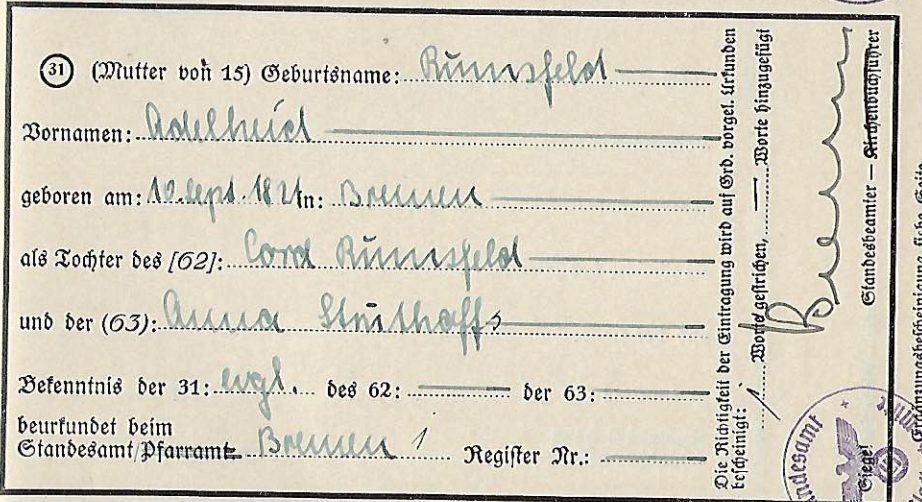 31 (Mutter von 15) Geburtsname: Rumsfeld
Vornamen: Adelheid
geboren am: 10. Sept. 1821 in: Bremen
als Tochter des [62]: Cord Rumsfeld
und der (63): Anna
Bekenntnis der 31: evgl. des 62: der 63:
beurkundet beim
Standesamt/Pfarramt Bremen 1 Register Nr.:
Die Richtigkeit der Eintragung wird auf Grd. vorgel. Urkunden
bescheinigt: 1 Worte gestrichen, — Worte hinzugefügt
Standesbeamter – Kirchenbuchführer
Siegel